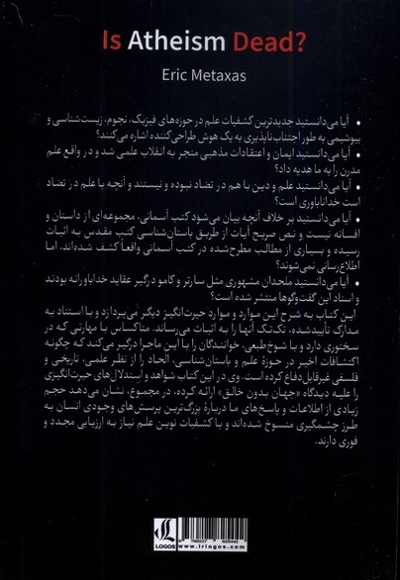 Is Atheism Dead?
Eric Metaxas
• آیا می‌دانستید جدیدترین کشفیات علم در حوزه‌های فیزیک، نجوم، زیست‌شناسی و
بیوشیمی به طور اجتناب‌ناپذیری به یک هوش طراحی‌کننده اشاره می‌کنند؟
• آیا می‌دانستید ایمان و اعتقادات مذهبی منجر به انقلاب علمی شد و در واقع علم
مدرن را به ما هدیه داد؟
• آیا می‌دانستید علم و دین با هم در تضاد نبوده و نیستند و آنچه با علم در تضاد
است خداناباوری است؟
• آیا می‌دانستید بر خلاف آنچه بیان می‌شود کتب آسمانی، مجموعه‌ای از داستان و
افسانه نیست و نص صریح آیات از طریق باستان‌شناسی کتب مقدس به اثبات
رسیده و بسیاری از مطالب مطرح‌شده در کتب آسمانی واقعاً کشف شده‌اند، اما
اطلاع‌رسانی نمی‌شوند؟
• آیا می‌دانستید ملحدان مشهوری مثل سارتر و کامو درگیر عقاید خداباورانه بودند
و اسناد این گفت‌وگوها منتشر شده است؟
این کتاب به شرح این موارد و موارد حیرت‌انگیز دیگر می‌پردازد و با استناد به
مدارک تأییدشده، تک‌تک آنها را به اثبات می‌رساند. متاکساس با مهارتی که در
سخنوری دارد و با شوخ‌طبعی، خوانندگان را با این ماجرا درگیر می‌کند که چگونه
اکتشافات اخیر در حوزهٔ علم و باستان‌شناسی، الحاد را از نظر علمی، تاریخی و
فلسفی غیرقابل‌دفاع کرده است. وی در این کتاب شواهد و استدلال‌های حیرت‌انگیزی
را علیه دیدگاه «جهان بدون خالق» ارائه کرده، در مجموع، نشان می‌دهد حجم
زیادی از اطلاعات و پاسخ‌های ما دربارهٔ بزرگ‌ترین پرسش‌های وجودی انسان به
طرز چشمگیری منسوخ شده‌اند و با کشفیات نوین علم نیاز به ارزیابی مجدد و
فوری دارند.
LOGOS
www.irlogos.com